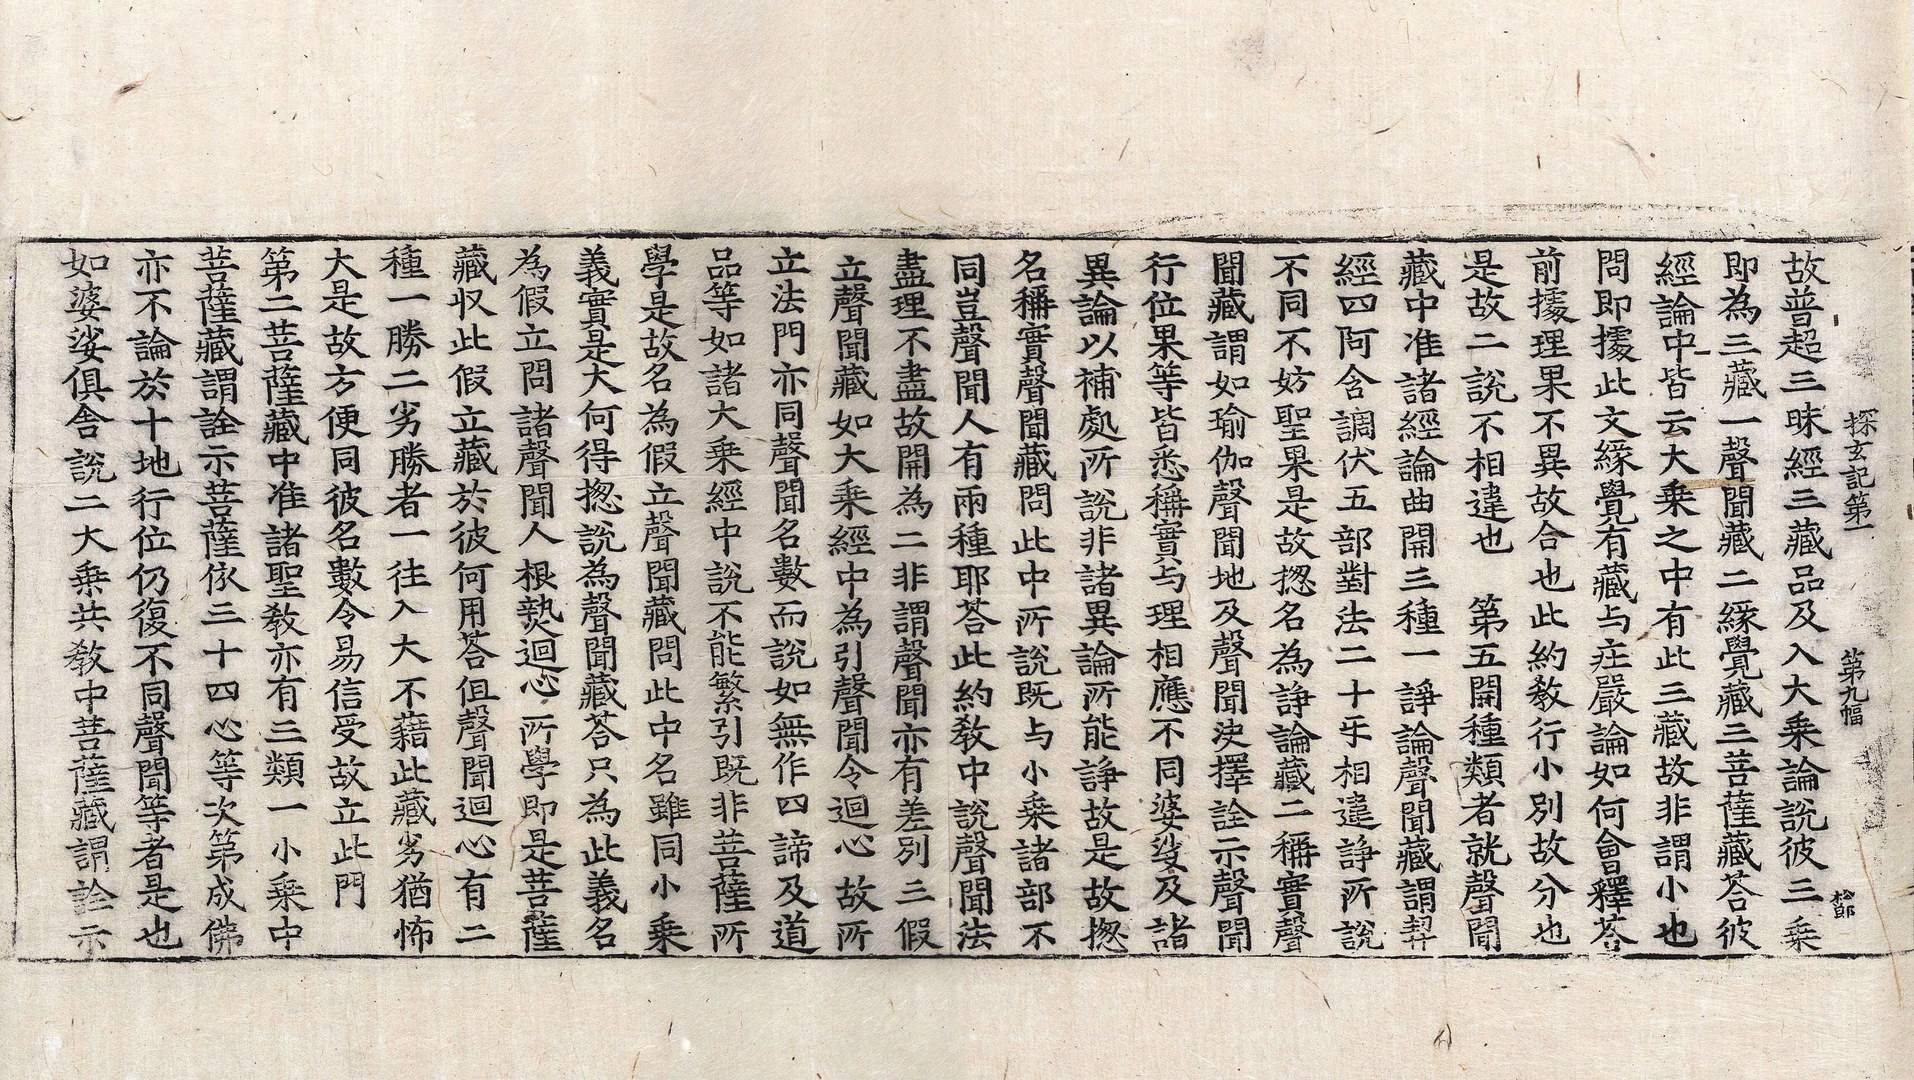 探玄記第一 第九幅 鄶
故普超三昧經三藏品及入大乗論說彼三乗
即為三藏一聲聞藏二緣覺藏三菩薩藏荅彼
經論中皆云大乗之中有此三藏故非謂小也
問即據此文緣覺有藏与莊嚴論如何會釋荅
前據理果不異故合也此約敎行小別故分也
是故二說不相違也 第五開種類者就聲聞
藏中准諸經論曲開三種一諍論聲聞藏謂契
經四阿含調伏五部對法二十乎相違諍所說
不同不妨聖果是故揔名為諍論藏二稱實聲
聞藏謂如瑜伽聲聞地及聲聞決擇詮示聲聞
行位果等皆悉稱實与理相應不同婆娑及諸
異論以補處所說非諸異論所能諍故是故揔
名稱實聲聞藏問此中所說旣与小乗諸部不
同豈聲聞人有兩種耶荅此約敎中說聲聞法
盡理不盡故開為二非謂聲聞亦有差別三假
立聲聞藏如大乗經中為引聲聞令迴心故所
立法門亦同聲聞名數而說如無作四諦及道
品等如諸大乗經中說不能繁引旣非菩薩所
學是故名為假立聲聞藏問此中名雖同小乗
義實是大何得揔說為聲聞藏荅只為此義名
為假立問諸聲聞人根熟迴心所學即是菩薩
藏収此假立藏於彼何用荅但聲聞迴心有二
種一勝二劣勝者一往入大不藉此藏劣猶怖
大是故方便同彼名數令易信受故立此門
第二菩薩藏中准諸聖敎亦有三類一小乗中
菩薩藏謂詮示菩薩依三十四心等次第成佛
亦不論於十地行位仍復不同聲聞等者是也
如婆娑俱舍說二大乗共敎中菩薩藏謂詮示